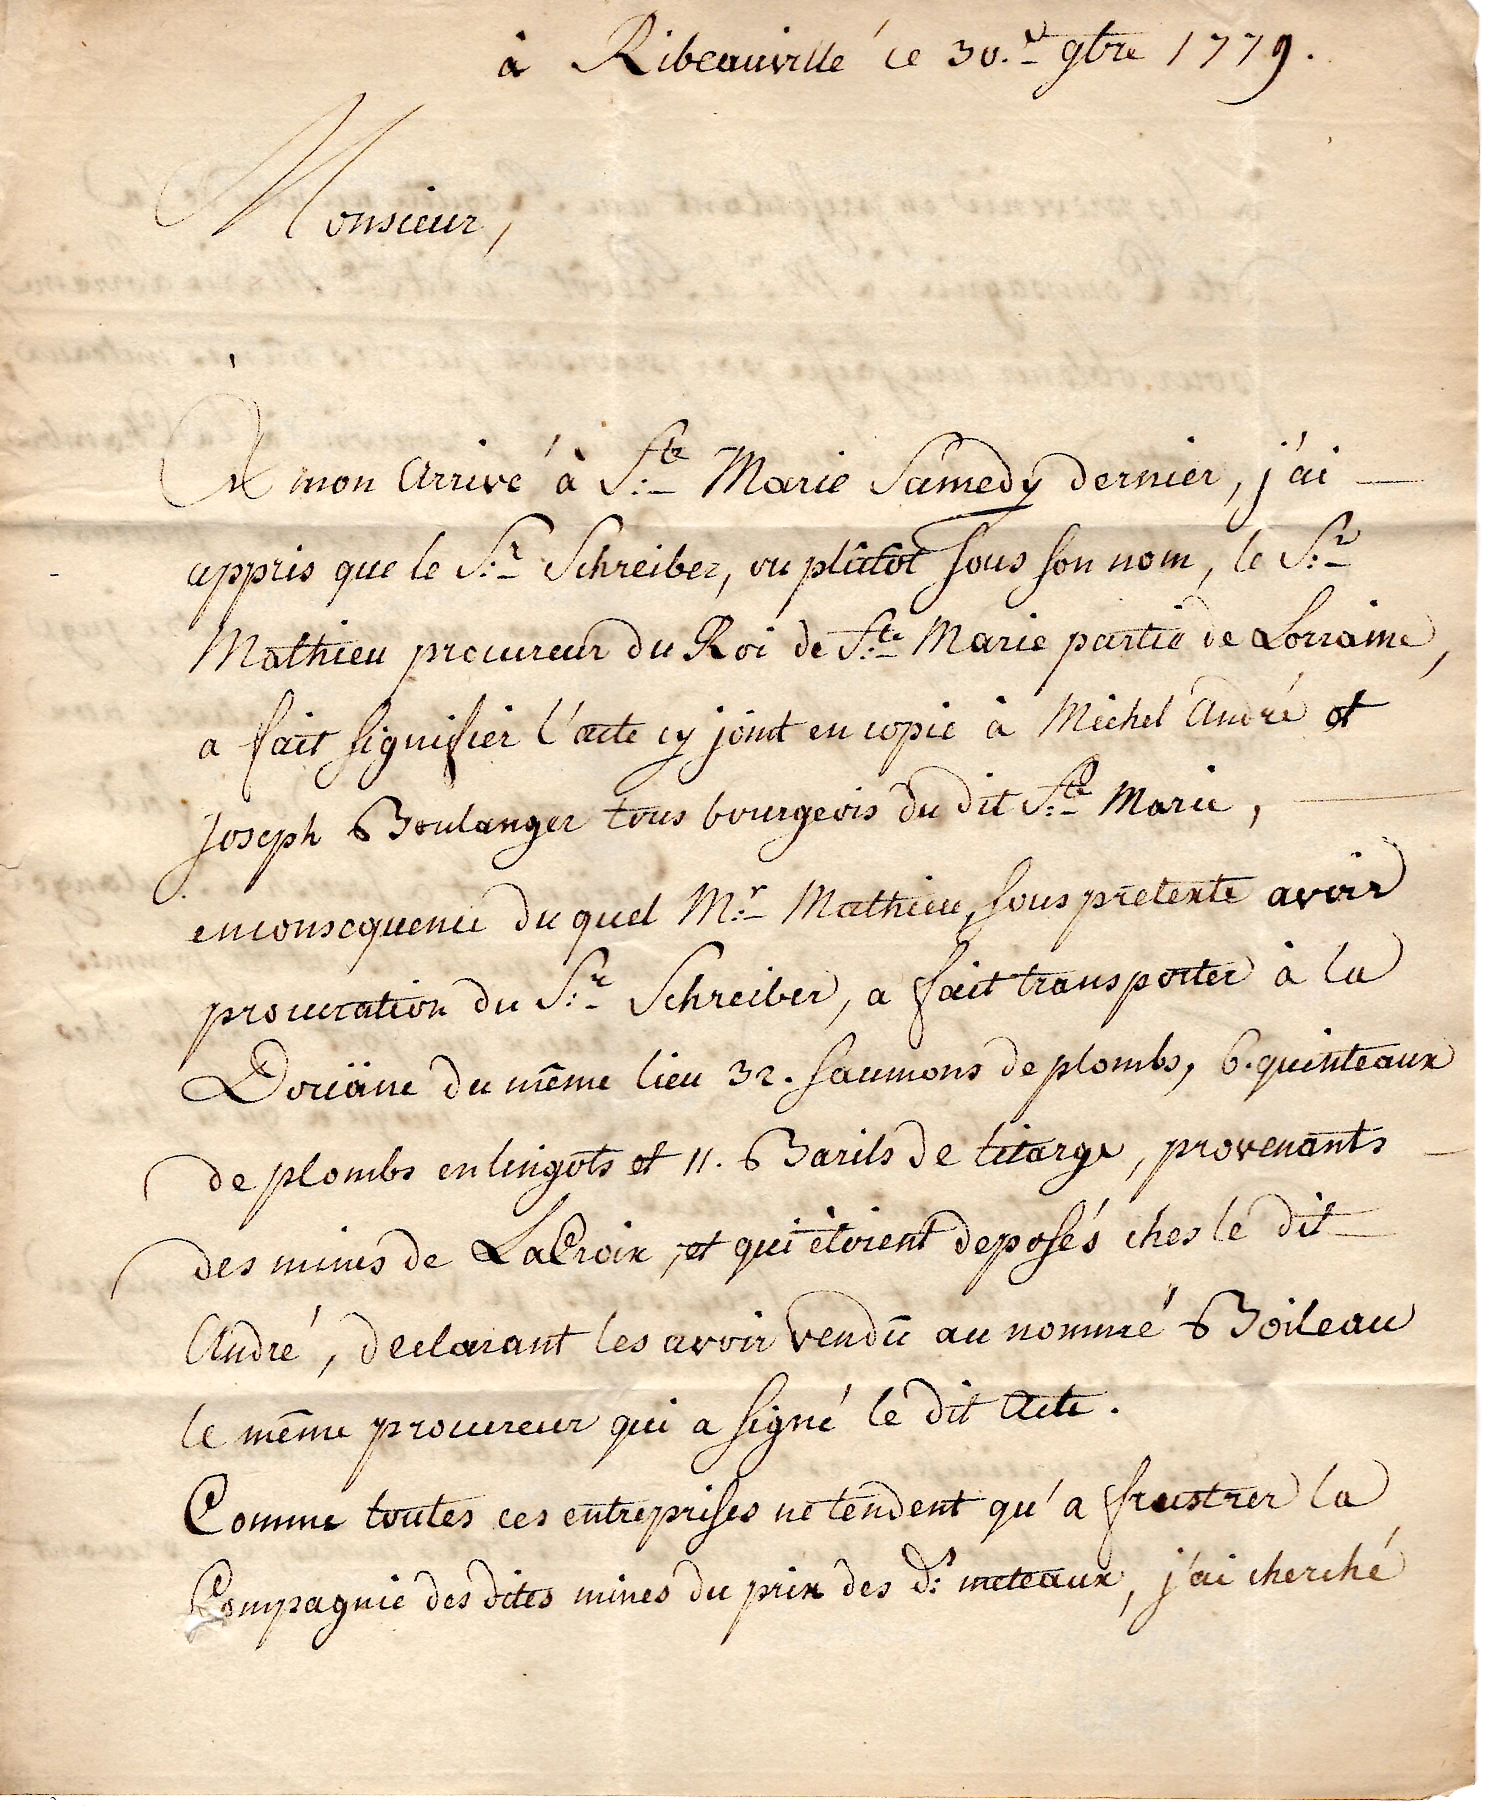 à Ribeauvillé ce 30.e 9bre 1779.
Monsieur,
A mon Arrivé à S:te Marie Samedy dernier, j'ai
appris que le S:r Schreiber, ou plûtôt sous son nom, le S:r
Mathieu procureur du Roi de S:te Marie partie de Lorraine,
a fait signifier l'acte cy joint en copie à Michel André et
Joseph Boulanger tous bourgeois du dit S:te Marie,
enconsequence du quel M:r Mathieu, sous prétexte avoir
procuration du S:r Schreiber, a fait transporter à la
Doüâne du même lieu 32. saumons de plombs, 6. quinteaux
de plombs en lingots et 11. Barils de litarge, provenants
des mines de LaCroix, et qui étoient deposés ches le dit
André, declarant les avoir vendû au nommé Boileau
le même procureur qui a signé le dit Acte.
Comme toutes ces entreprises ne tendent qu'a frustrer la
Compagnie des dites mines du prix des d:s meteaux, j'ai cherché